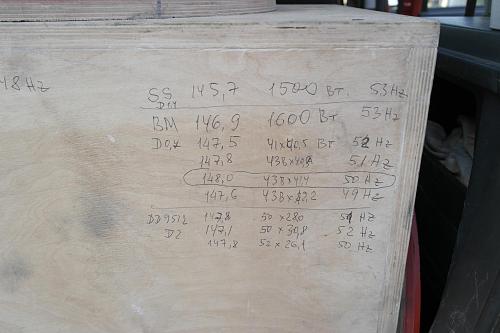 48Hz
SS 145,7 1500 Вт. 53Hz
D1,1
BM 146,9 1600 Вт 53Hz
147,5 41x40,5 Вт 52Hz
147,8 51Hz
148,0 43В x 41,4 50 Hz
147,6 43В x 42,2 49 Hz
DD9512 147,8 50 x 28,0 51 Hz
D2 147,1 50 x 30,8 52 Hz
147,8 52 x 26,1 50 Hz